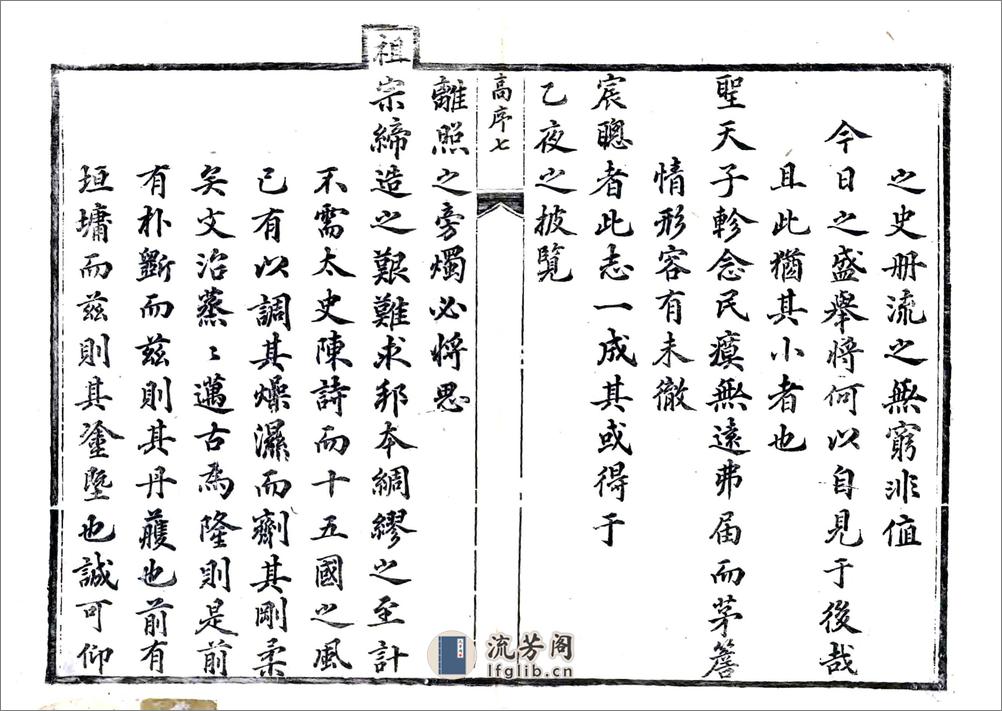 之史册流之無窮非值
今日之盛舉將何以自見于後哉
且此猶其小者也
聖天子軫念民瘼無遠弗届而茅簷
情形容有未徹
宸聰者此志一成其或得于
乙夜之披覽
高序七
離照之旁燭必將思
祖宗締造之艱難求邦本綢繆之至計
不需太史陳詩而十五國之風
已有以調其燥濕而劑其剛柔
矣文治蒸〻邁古為隆則是前
有朴斲而兹則其丹雘也前有
垣墉而兹則其塗塈也誠可仰
流芳阁
lfglib.cn